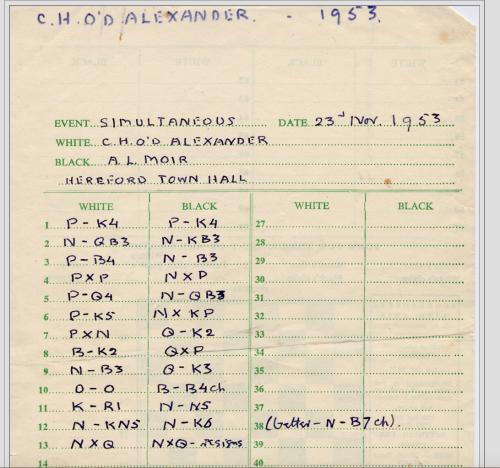 C.H.O'D ALEXANDER. - 1953.
EVENT SIMULTANEOUS DATE 23d Nov. 1953
WHITE C.H.O'D ALEXANDER
BLACK A.L. MOIR
HEREFORD TOWN HALL
WHITE BLACK WHITE BLACK
1 P-K4 P-K4 27
2 N-QB3 N-KB3 28
3 P-B4 N-B3 29
4 PXP NXP 30
5 P-Q4 N-QB3 31
6 P-K5 NXKP 32
7 PXN Q-K2 33
8 B-K2 QXP 34
9 N-B3 Q-K3 35
10 O-O B-B4ch 36
11 K-R1 N-N5 37
12 N-KN5 N-K6 38 (better-N-B7ch).
13 NXQ NXQ-resigns 39
40